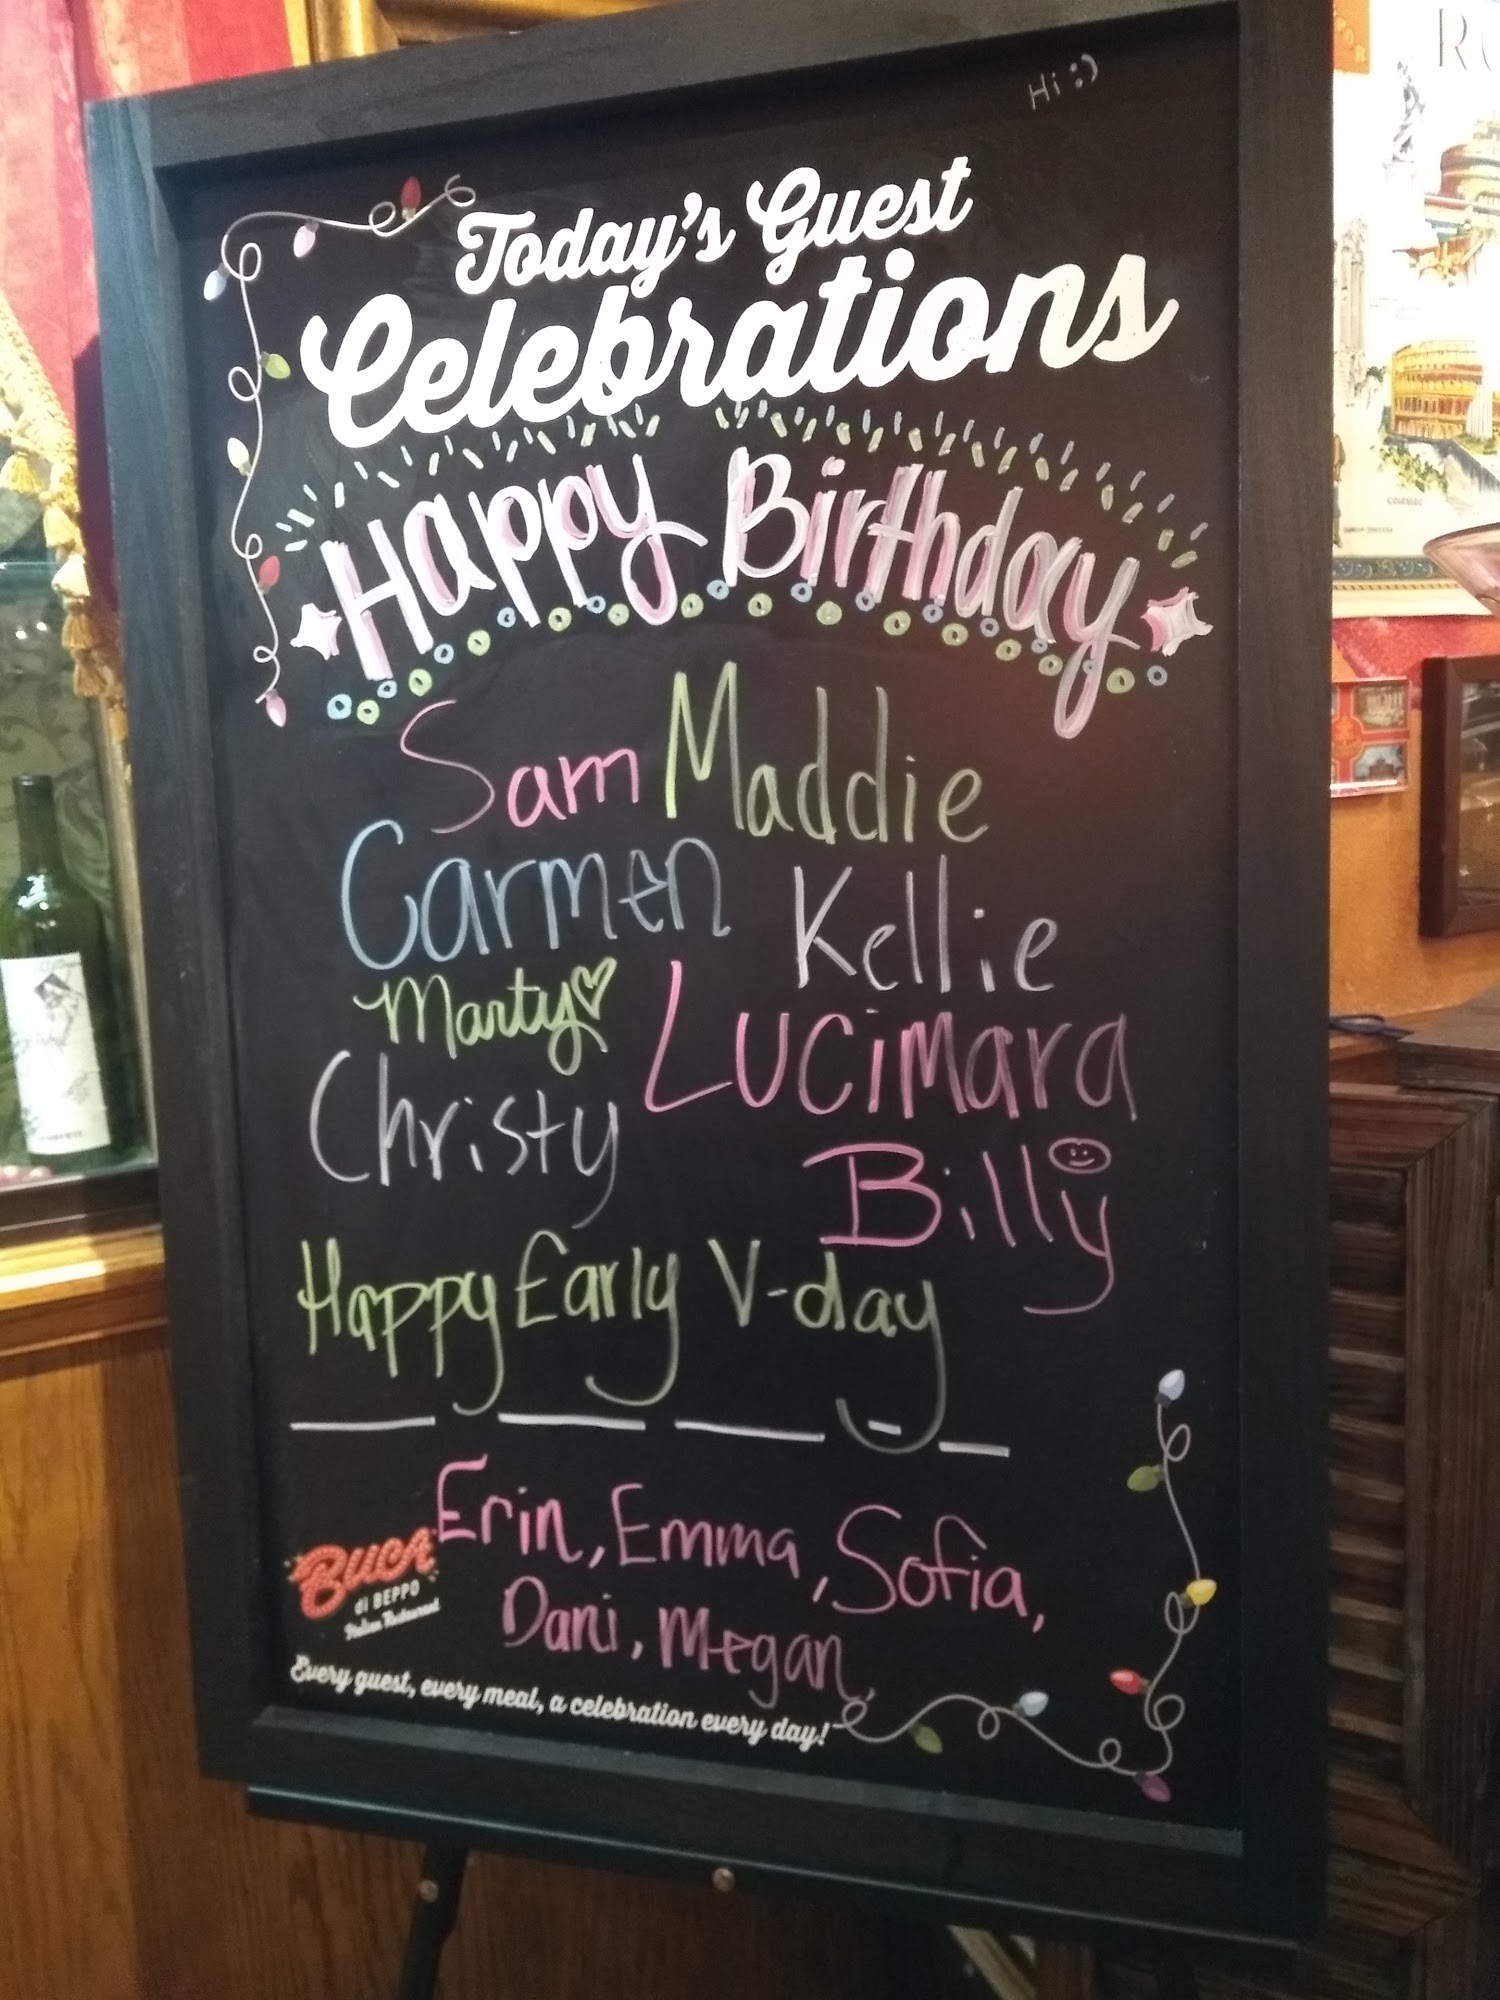 Hi :)
Today's Guest
Celebrations
Happy Birthday
Sam Maddie
Carmen Kellie
Marty♡ Lucimara
Christy
Billy
Happy Early V-day
Erin, Emma, Sofia,
Dani, Megan,
BUCA
di BEPPO
Italian Restaurant
Every guest, every meal, a celebration every day!